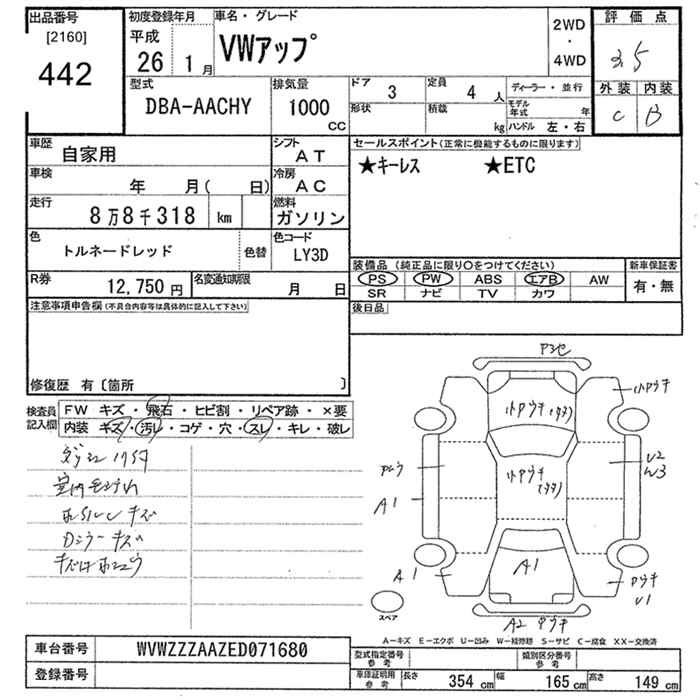 出品番号
[2160]
442
初度登録年月
平成
26 1月
車名・グレード
VWアップ
2WD
・
4WD
評価点
3.5
外装 内装
C B
型式
DBA-AACHY
排気量
1000
cc
ドア 3
定員 4 人
形状
積載 kg
ディーラー・並行
モデル年式 年
ハンドル 左・右
車歴
自家用
シフト
AT
車検
年 月( 日)
冷房
AC
走行
8万8千318 km
燃料
ガソリン
色
トルネードレッド
色替
色コード
LY3D
R券
12,750円
名変通知期限
月 日
セールスポイント(正常に機能するものに限ります)
★キーレス ★ETC
装備品(純正品に限り〇をつけてください)
PS PW ABS エアB AW
SR ナビ TV カワ
新車保証書
有・無
後日品
注意事項申告欄(不具合内容等は具体的に記入して下さい)
修復歴 有〔箇所 〕
検査員
記入欄
FW キズ・飛石・ヒビ割・リペア跡・×要
内装 キズ・汚レ・コゲ・穴・スレ・キレ・破レ
小アウチ
小アウチ
小アウチ
U2
W3
A1
A1
A1
アウチ
U1
A2 アウチ
スペア
A-キズ E-エクボ U-凹み W-補修跡 S-サビ C-腐食 XX-交換済
車台番号
WVWZZZAAZED071680
登録番号
型式指定番号
参考
類別区分番号
参考
車庫証明用
参考
長さ 354 cm
幅 165 cm
高さ 149 cm